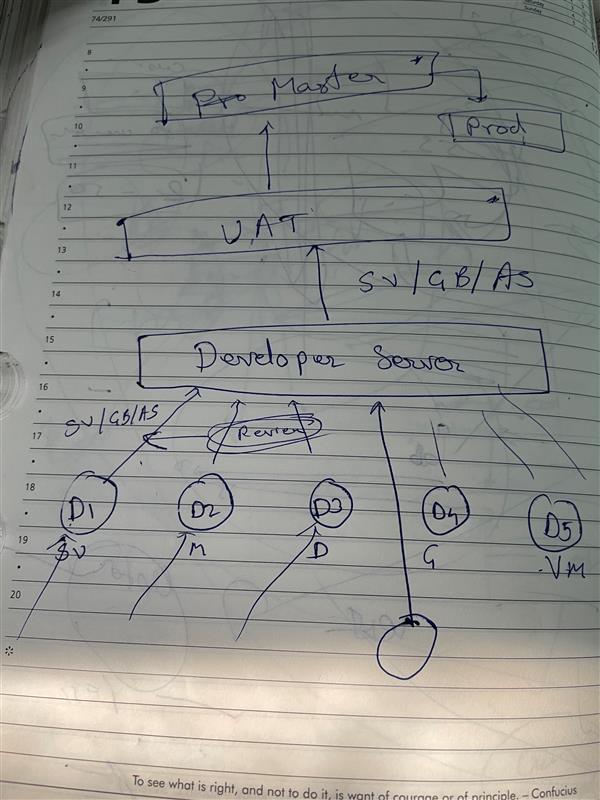 74/291
Saturday
Sunday
8
9
Pro Master *
10
Prod
11
12
UAT *
13
SV/GB/AS
14
15
Developer Server
16
SV/GB/AS
17
Review
18
D1 D2 D3 D4 D5
19
SV M D G VM
20
To see what is right, and not to do it, is want of courage or of principle. – Confucius